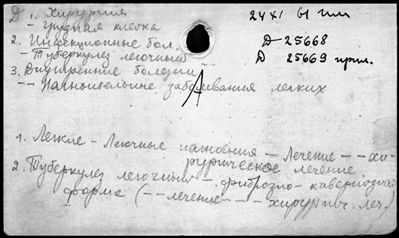 Д 1. Хирургия
– грудная клетка
2. Инфекционные бол.
– Туберкулез легочный
3. Внутренние болезни
-- Нагноительные заболевания легких
24 XI 61 г
Д-25668
Д 25669 прил.
1. Легкие – Легочные нагноения – Лечение – – хи-
рургическое лечение
2. Туберкулез легочный – фиброзно-кавернозная
форма (– – лечение – – – хирургич. леч.)